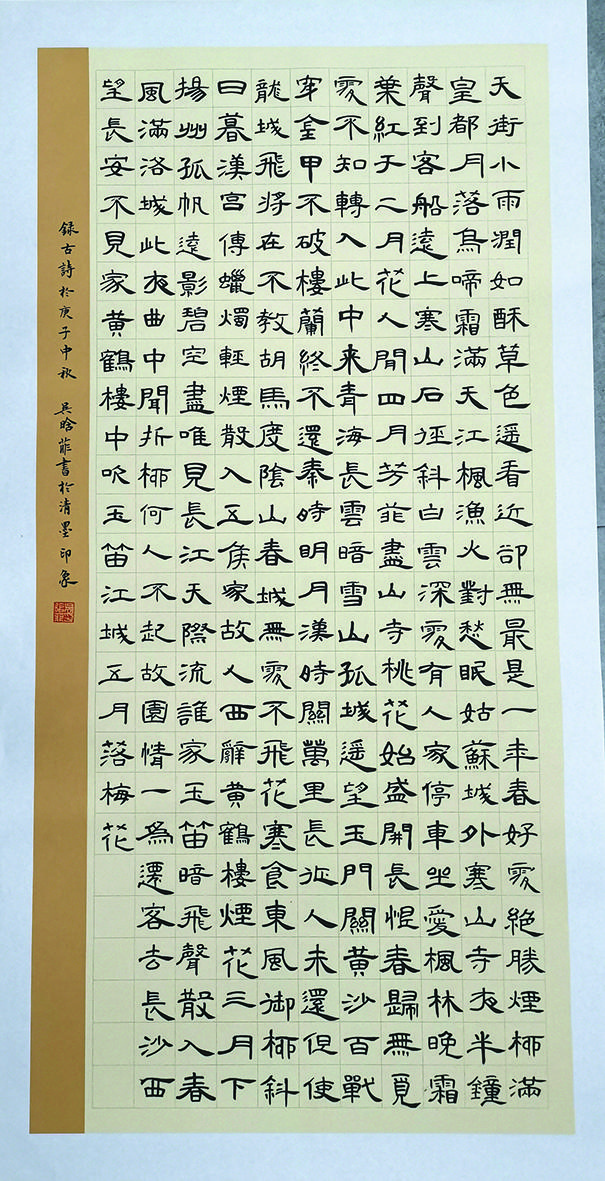 天街小雨潤如酥草色遥看近卻無最是一年春好處絶勝煙柳滿
皇都月落烏啼霜滿天江楓漁火對愁眠姑蘇城外寒山寺夜半鐘
聲到客船遠上寒山石徑斜白雲深處有人家停車坐愛楓林晚霜
葉紅于二月花人間四月芳菲盡山寺桃花始盛開長恨春歸無覓
處不知轉入此中来青海長雲暗雪山孤城遥望玉門關黄沙百戰
穿金甲不破樓蘭終不還秦時明月漢時關萬里長征人未還但使
龍城飛將在不教胡馬度陰山春城無處不飛花寒食東風御柳斜
日暮漢宮傳蠟燭輕煙散入五侯家故人西辭黄鶴樓煙花三月下
揚州孤帆遠影碧空盡唯見長江天際流誰家玉笛暗飛聲散入春
風滿洛城此夜曲中聞折柳何人不起故園情一為遷客去長沙西
望長安不見家黄鶴樓中吹玉笛江城五月落梅花
録古詩於庚子中秋 吳晗菲書於清墨印象